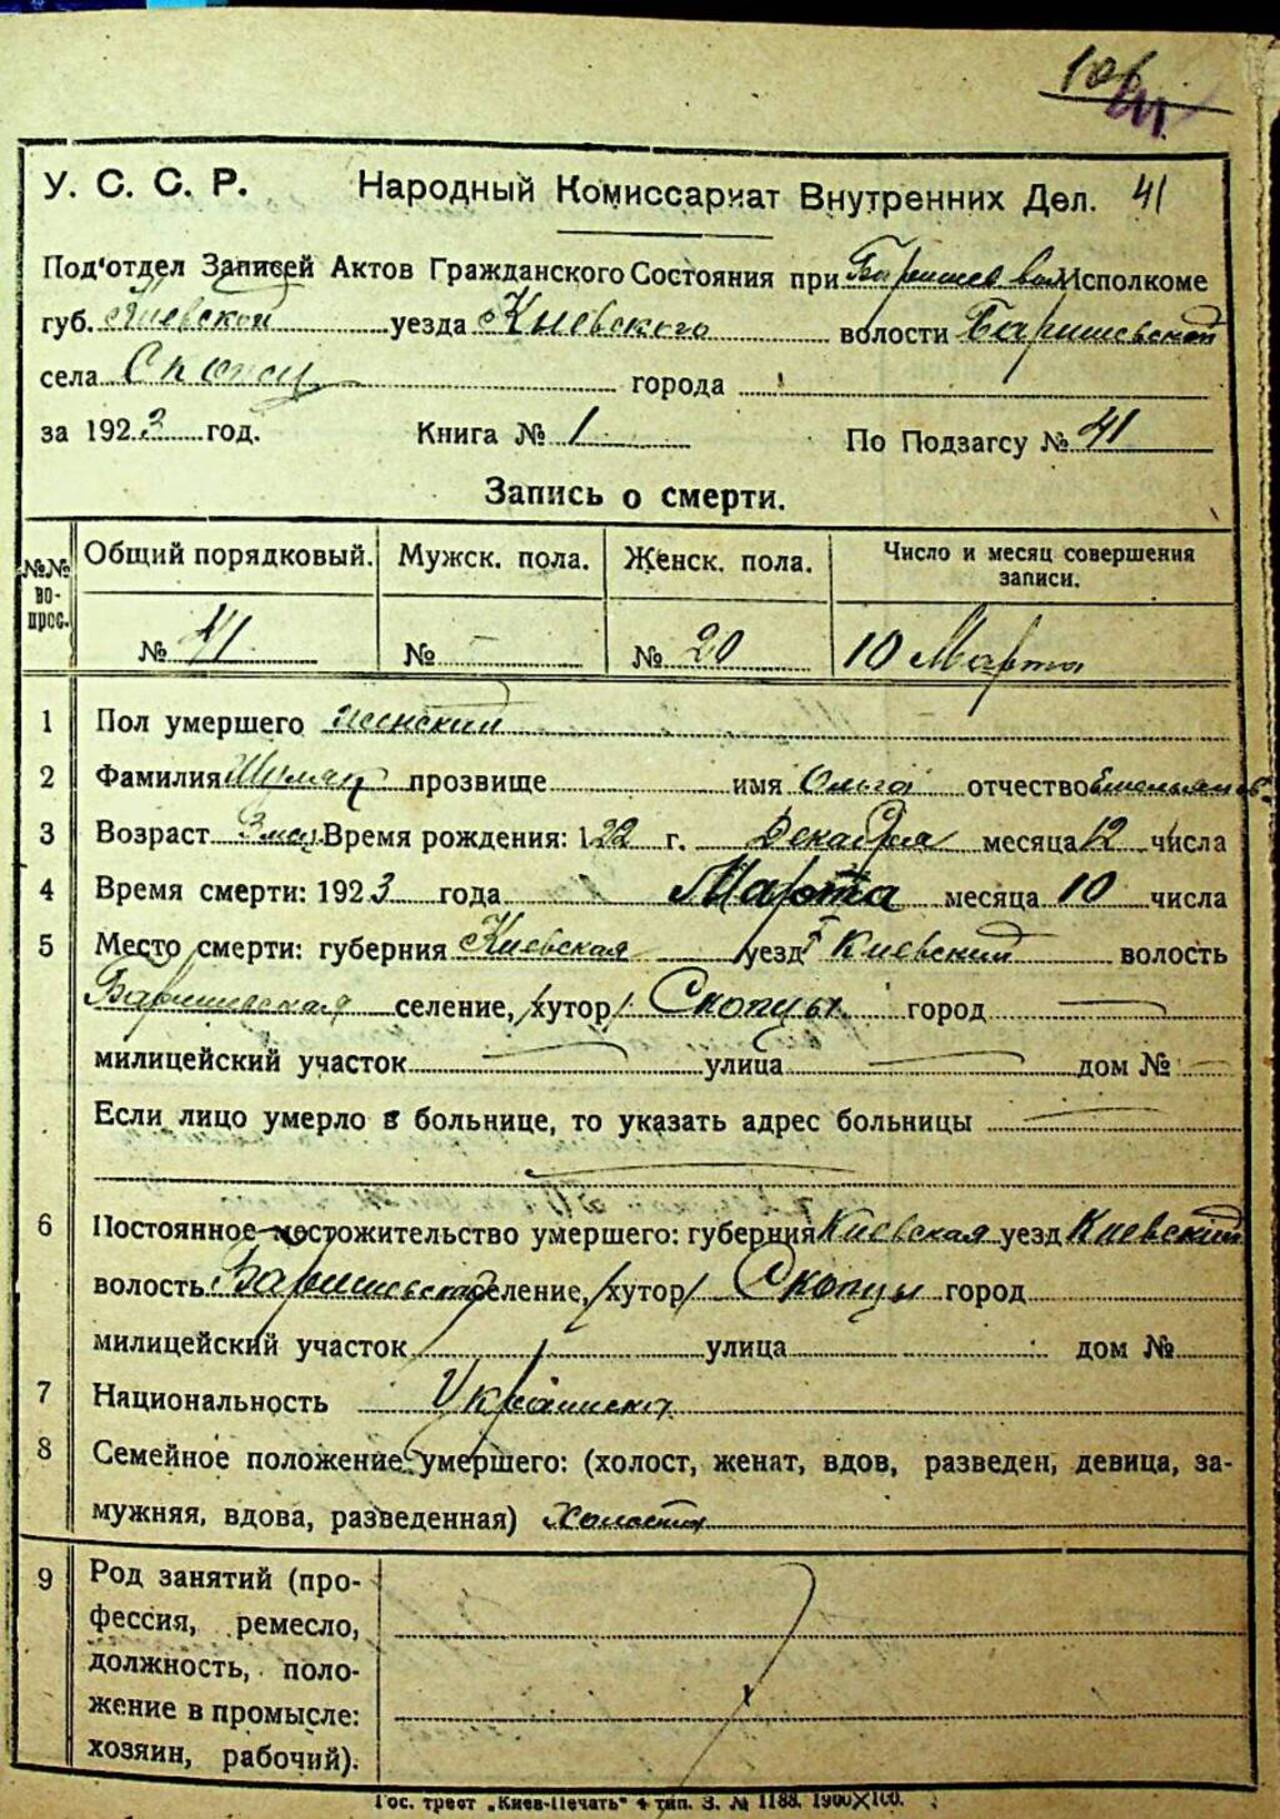 106
У. С. С. Р. Народный Комиссариат Внутренних Дел. 41
Под'отдел Записей Актов Гражданского Состояния при Баришев вол Исполкоме
губ. Киевской уезда Киевского волости Баришевской
села Скопцы города
за 1923 год. Книга № 1 По Подзагсу № 41
Запись о смерти.
№№ во-прос. Общий порядковый. Мужск. пола. Женск. пола. Число и месяц совершения записи.
№ 41 № - № 20 10 Марта
1 Пол умершего женский
2 Фамилия прозвище имя Ольга отчество Емельянов.
3 Возраст 3 мес. Время рождения: 122 г. Декабря месяца 12 числа
4 Время смерти: 1923 года Марта месяца 10 числа
5 Место смерти: губерния Киевская уезд Киевский волость
Баришевская селение, /хутор/ Скопцы город —
милицейский участок — улица — дом № —
Если лицо умерло в больнице, то указать адрес больницы —
6 Постоянное местожительство умершего: губерния Киевская уезд Киевский
волость Баришевская селение, /хутор/ Скопцы город
милицейский участок улица дом №
7 Национальность Украинска
8 Семейное положение умершего: (холост, женат, вдов, разведен, девица, за-
мужняя, вдова, разведенная) Холоста
9 Род занятий (про-
фессия, ремесло,
должность, поло-
жение в промысле:
хозяин, рабочий).
Гос. трест „Киев-Печать" 4 тип. З. № 1188. 1900×100.